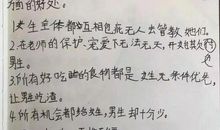 的好处。
1.女生主体都互相包庇无人出管教她们。
2.在老师的保护.宠爱下无法无天.开始其负
男生。
3.所有好吃的食物都是女生先条件优先,
让男生吃渣。
4.所有机会都给女生,男生却十分少。